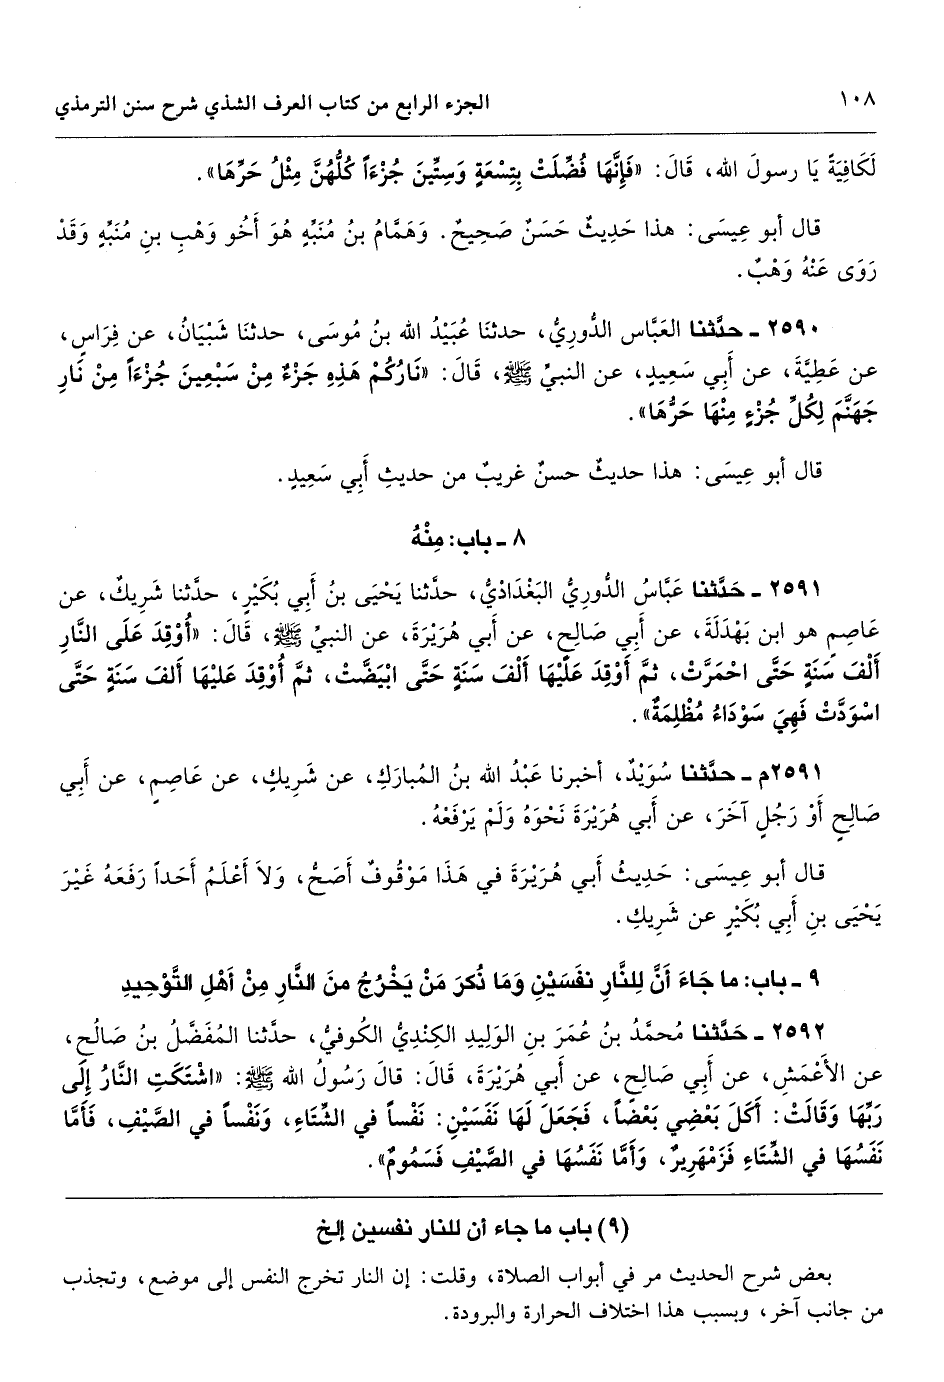 ١٠٨ الجزء الرابع من كتاب العرف الشذي شرح سنن الترمذي
لَكَافِيَةً يَا رسولَ الله، قَالَ: «فَإِنَّهَا فُضِّلَتْ بِتِسْعَةٍ وَسِتِّينَ جُزْءَاً كُلُّهُنَّ مِثْلُ حَرِّهَا».
قال أبو عِيسَى: هذا حَدِيثٌ حَسَنٌ صَحِيحٌ. وَهَمَّامُ بنُ مُنَبِّهٍ هُوَ أَخُو وَهْبِ بنِ مُنَبِّهٍ وَقَدْ
رَوَى عَنْهُ وَهْبٌ.
٢٥٩٠ - حدَّثنا العَبَّاس الدُّورِيُّ، حدثنَا عُبَيْدُ الله بنُ مُوسَى، حدثنَا شَيْبَانُ، عن فِرَاسٍ،
عن عَطِيَّةَ، عن أَبِي سَعِيدٍ، عن النبيِّ ﷺ، قَالَ: «نَارُكُمْ هَذِهِ جَزْءٌ مِنْ سَبْعِينَ جُزْءَاً مِنْ نَارِ
جَهَنَّمَ لِكُلِّ جُزْءٍ مِنْهَا حَرُّهَا».
قال أبو عِيسَى: هذا حديثٌ حسنٌ غريبٌ من حديثِ أَبِي سَعِيدٍ.
٨ - باب: مِنْهُ
٢٥٩١ - حَدَّثنا عَبَّاسُ الدُّورِيُّ البَغْدَادْيُّ، حدَّثنا يَحْيَى بنُ أَبِي بُكَيْرٍ، حدَّثنا شَرِيكٌ، عن
عَاصِمٍ هو ابن بَهْدَلَةَ، عن أَبِي صَالِحٍ، عن أَبي هُرَيْرَةَ، عن النبيِّ ﷺ، قَالَ: «أُوْقِدَ عَلَى النَّارِ
أَلْفَ سَنَةٍ حَتَّى احْمَرَّتْ، ثمَّ أُوْقِدَ عَلَيْهَا ألْفَ سَنَةٍ حَتَّى ابْيَضَّتْ، ثمَّ أُوْقِدَ عَلَيْهَا ألفَ سَنَةٍ حَتَّى
اسْوَدَّتْ فَهِيَ سَوْدَاءُ مُظْلِمَةٌ».
٢٥٩١م - حدَّثنا سُوَيْدٌ، أخبرنا عَبْدُ الله بنُ المُبارَكِ، عن شَرِيكٍ، عن عَاصِمٍ، عن أَبِي
صَالِحٍ أَوْ رَجُلٍ آخَرَ، عن أَبي هُرَيْرَةَ نَحْوَهُ وَلَمْ يَرْفَعْهُ.
قال أبو عِيسَى: حَدِيثُ أَبي هُرَيْرَةَ في هَذَا مَوْقُوفٌ أَصَحُّ، وَلاَ أَعْلَمُ أَحَداً رَفَعَهُ غَيْرَ
يَحْيَى بنِ أَبِي بُكَيْرٍ عن شَرِيكِ.
٩ - باب: ما جَاءَ أَنَّ لِلنَّارِ نفَسَيْنِ وَمَا ذُكرَ مَنْ يَخْرُجُ منَ النَّارِ مِنْ أهْلِ التَّوْحِيدِ
٢٥٩٢ - حَدَّثنا مُحمَّدُ بنُ عُمَرَ بنِ الوَلِيدِ الكِنْدِيُّ الكُوفيُّ، حدَّثنا المُفَضَّلُ بنُ صَالُحٍ،
عن الأَعْمَشِ، عن أَبِي صَالِحٍ، عن أَبي هُرَيْرَةَ، قَالَ: قالَ رَسُولُ الله ﷺ: «اشْتَكَتِ النَّارُ إِلَى
رَبِّهَا وَقَالَتْ: أَكَلَ بَعْضِي بَعْضَاً، فَجَعَلَ لَهَا نَفَسَيْنِ: نَفْساً في الشِّتَاءِ، وَنَفْساً في الصَّيْفِ، فَأَمَّا
نَفَسُهَا في الشِّتَاءِ فَزَمْهَرِيرٌ، وَأَمَّا نَفَسُهَا في الصَّيْفِ فَسَمُومٌ».
(٩) باب ما جاء أن للنار نفسين إلخ
بعض شرح الحديث مر في أبواب الصلاة، وقلت: إن النار تخرج النفس إلى موضع، وتجذب
من جانب آخر، وبسبب هذا اختلاف الحرارة والبرودة.